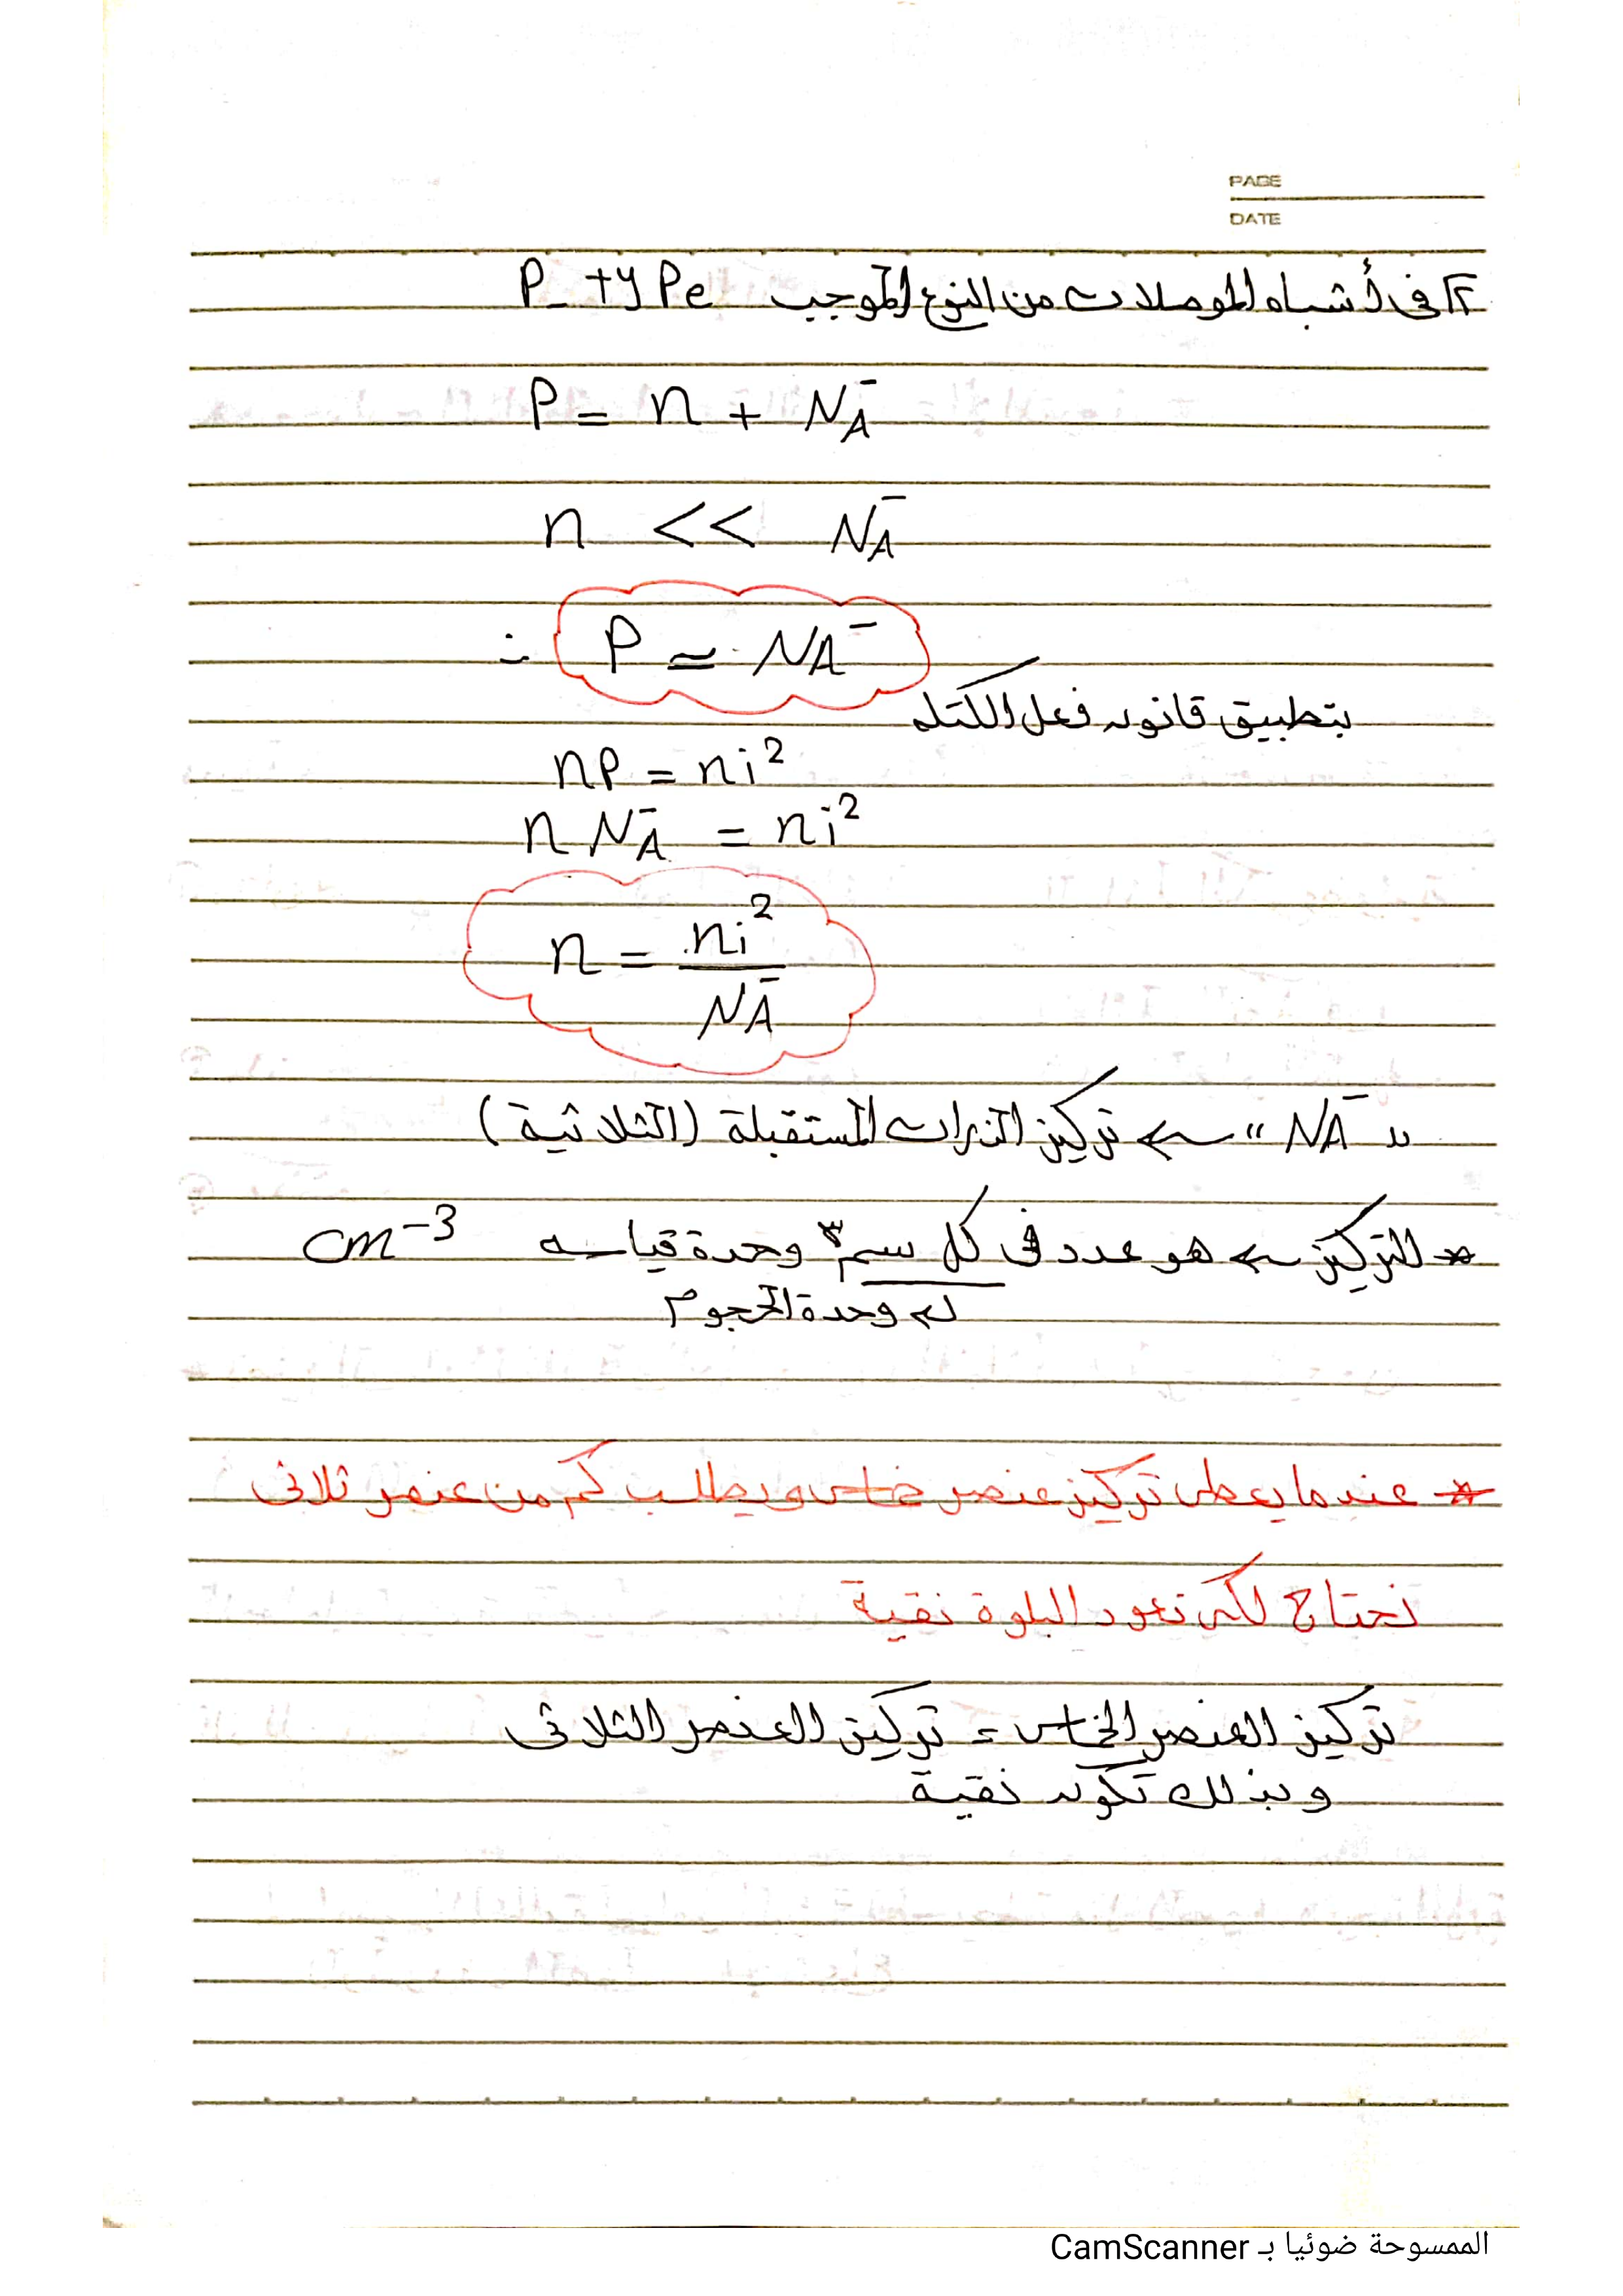 PAGE
DATE
٢ في أشباه الموصلات من النوع الموجب P_type
P = n + NA⁻
n << NA⁻
∴ P ≃ NA⁻
بتطبيق قانون فعل الكتلة
nP = ni²
n NA⁻ = ni²
n = ni² / NA⁻
" NA⁻ " ← تركيز الذرات المستقبلة (الثلاثية)
* التركيز ← هو عدد فى كل سم³ وحدة قياسه cm⁻³
وحدة الحجوم
* عندما يعطى تركيز عنصر خماسى ويطلب كم من عنصر ثلاثى
نحتاج لكى تعود البلورة نقية
تركيز العنصر الخماسى = تركيز العنصر الثلاثى
وبذلك تكون نقية
الممسوحة ضوئيا بـ CamScanner